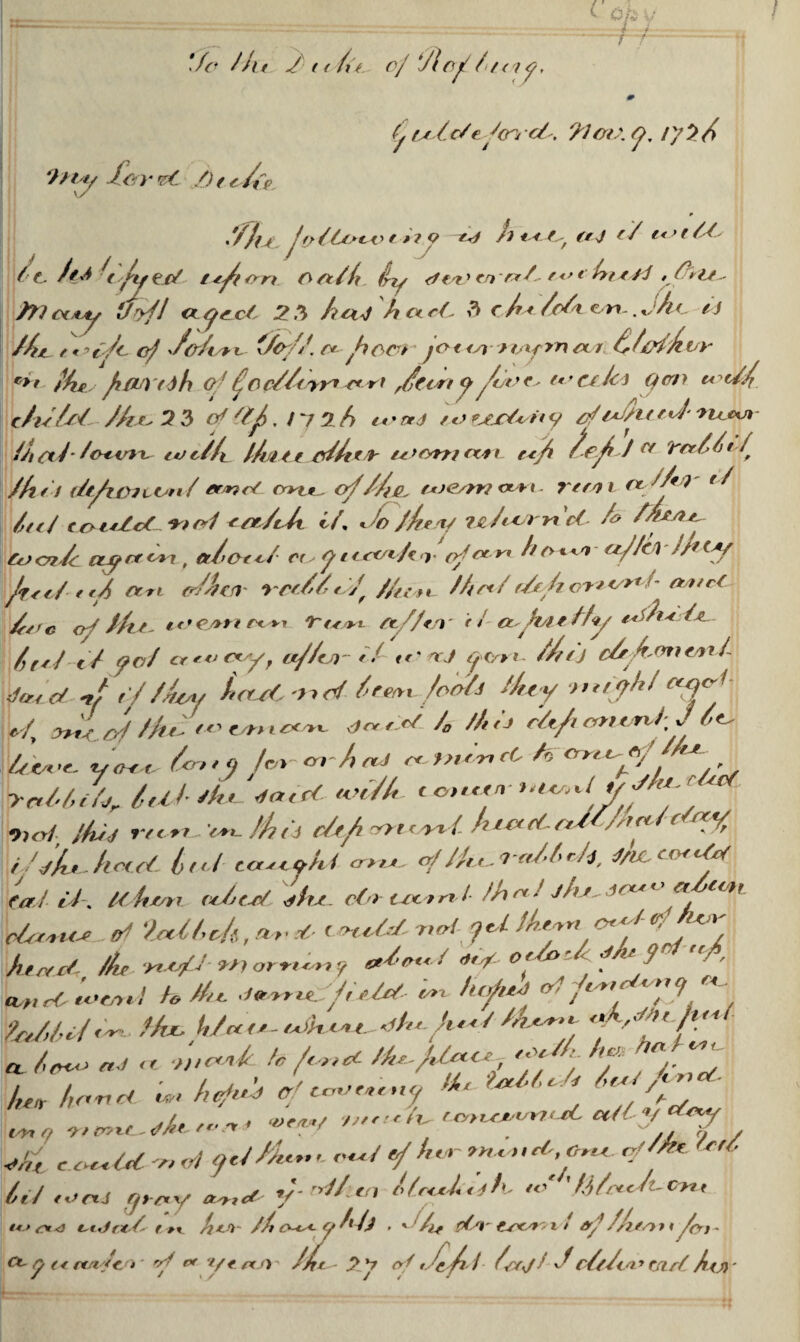 Copy
To the Duke of Roxburg.
Guldeford. Nov. 9. 1726
My Lord Duke
The following is true, as it will
be testifyed upon oath by several witness. One
Mary Toft aged 23 has had 3 children. She is
the wife of John Toft. a poor journeyman Clothier
in the parish of Godlyman being five weeks gon with
child the 23 of Ap. 1726 was weeding
that town with three other woman up lept a rabbit,
this deponent and one of the women run after it
but could not catch it. So they return'd to there
work again, about a quarter of an hour after they
put up an other rabbit, then that deponent and
two of the women run after it a pritty while
but it got away, after it was gon this deponent
said if they had not been fools they might agot
it, one of the women said to this deponent, I be
lieve you long for or has a mind to one of the
rabbits, but she said with concern
not this run in this deponent had all that day
if she had but caught one of the rabbis, she could
eat it. When abed she dreamt that she saw about
dance of Rabbits, and could not get them out of her
head, the next morning about six oclock she got up,
and went to the same field in hopes of finding a
Rabbit in the place where she put them up, she put
a bow as a mark to find the place, with her hat in
her hand in hopes of covering the Rabbits but find
ing none she was very much concerned all day
she could not get them out of her mind, one of the reb
bit was gray and y other blackish wch blackish one
was usual in her thoughts. She dreamt of them for
a quarter of a year the 27 of Sept last I delivered her